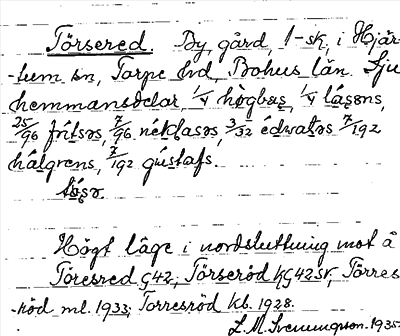 Törsered. By, gård, 1-sk, i Hjär-
-tum sn, Torpe hd, Bohus län. Sju
hemmansdelar, 1/4 högbas, 1/4 lásons,
25/96 frítsəs, 7/96 nèkḷasəs, 3/32 édvaṭəs 7/192
hálgrens, 7/192 gústafs.
tö̀sə.
Högt läge i nordsluttning mot å
Töresred G42; Törseröd KG42SK, Törres
-röd ml. 1933; Torresröd kb. 1928.
L.M. Svenungsson. 1935